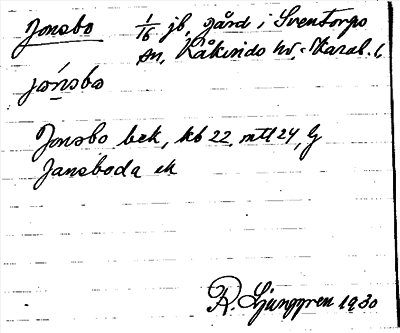 Jonsbo 1/16 jb, gård i Sventorps
sn, Kåkinds hd, Skarab. l.
jónsbo
Jonsbo bek, kb 22, mtl 24, Lj
Jansboda ek
R. Ljunggren 1930